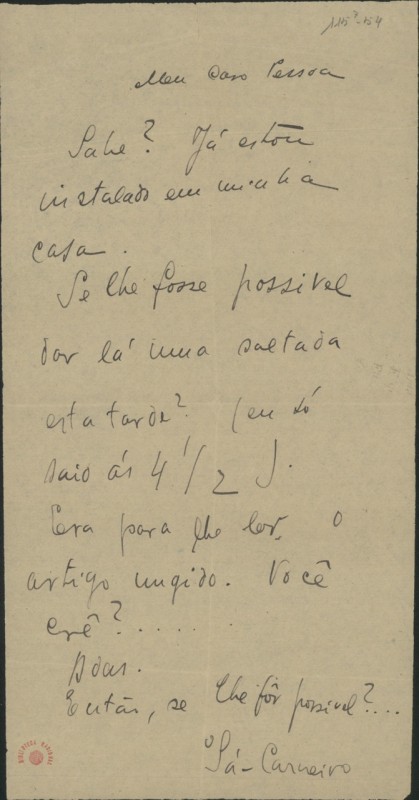 115³-154
Meu caro Pessoa
Sabe? Já estou
instalado em minha
casa.
Se lhe fosse possivel
dar lá uma saltada
esta tarde? (eu só
saio ás 4 1/2).
Era para lhe ler, o
artigo ungido. Você
crê?......
Adeus.
Então, se lhe fôr possivel?...
o Sá-Carneiro
BIBLIOTECA NACIONAL